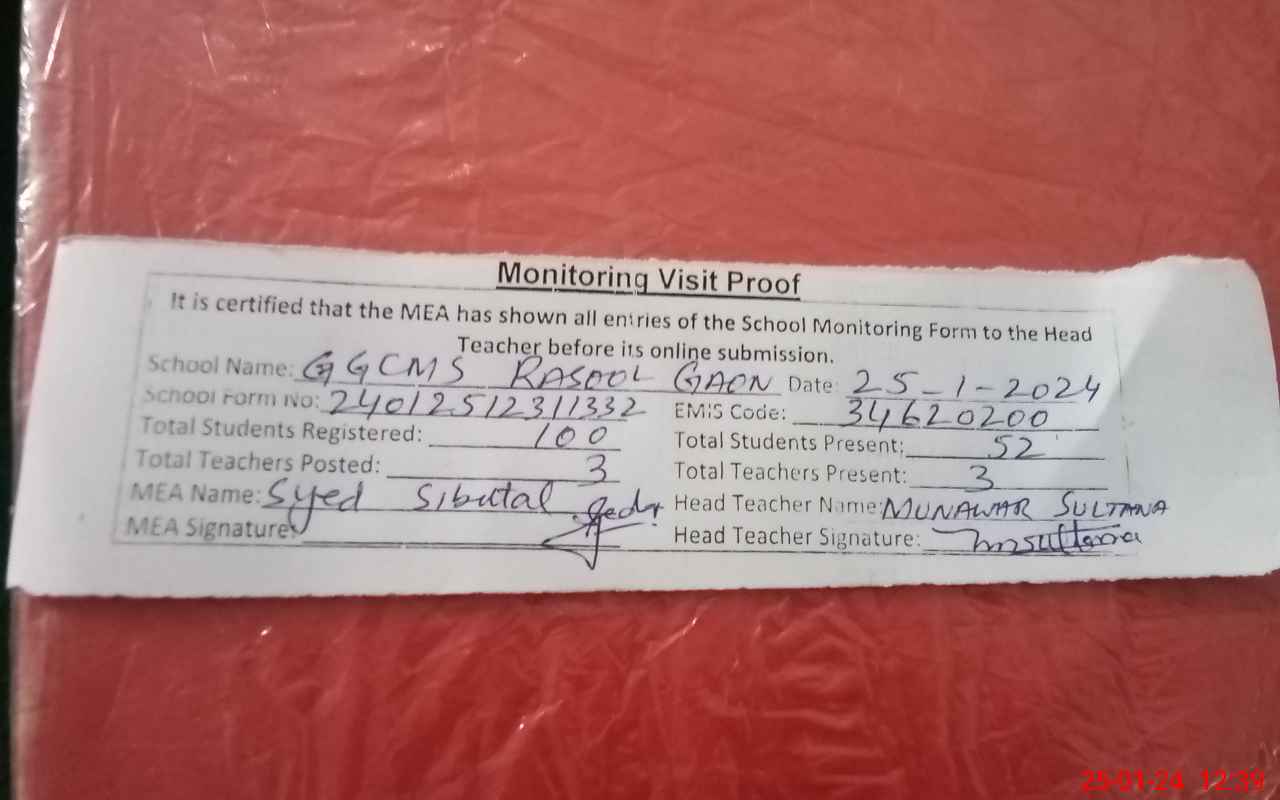 Monitoring Visit Proof
It is certified that the MEA has shown all entries of the School Monitoring Form to the Head
Teacher before its online submission.
School Name: GGCMS RASOOL GAON Date: 25-1-2024
School Form No: 24012512311332 EMIS Code: 34620200
Total Students Registered: 100 Total Students Present: 52
Total Teachers Posted: 3 Total Teachers Present: 3
MEA Name: Syed Sibutal Head Teacher Name: MUNAWAR SULTANA
MEA Signature: Head Teacher Signature: msultana
25-01-24 12:39